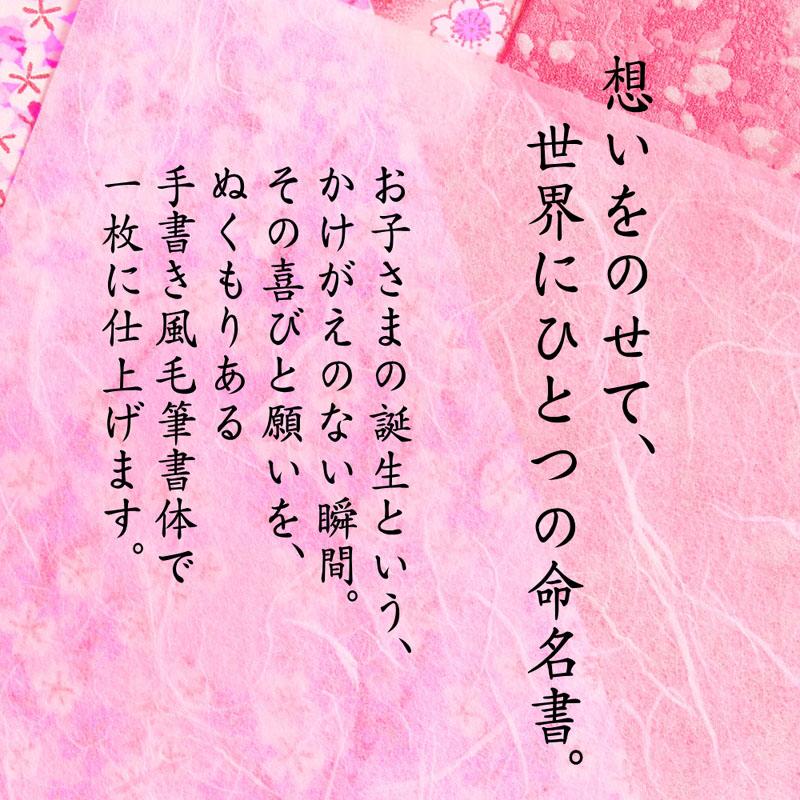 想いをのせて、
世界にひとつの命名書。
お子さまの誕生という、
かけがえのない瞬間。
その喜びと願いを、
ぬくもりある
手書き風毛筆書体で
一枚に仕上げます。